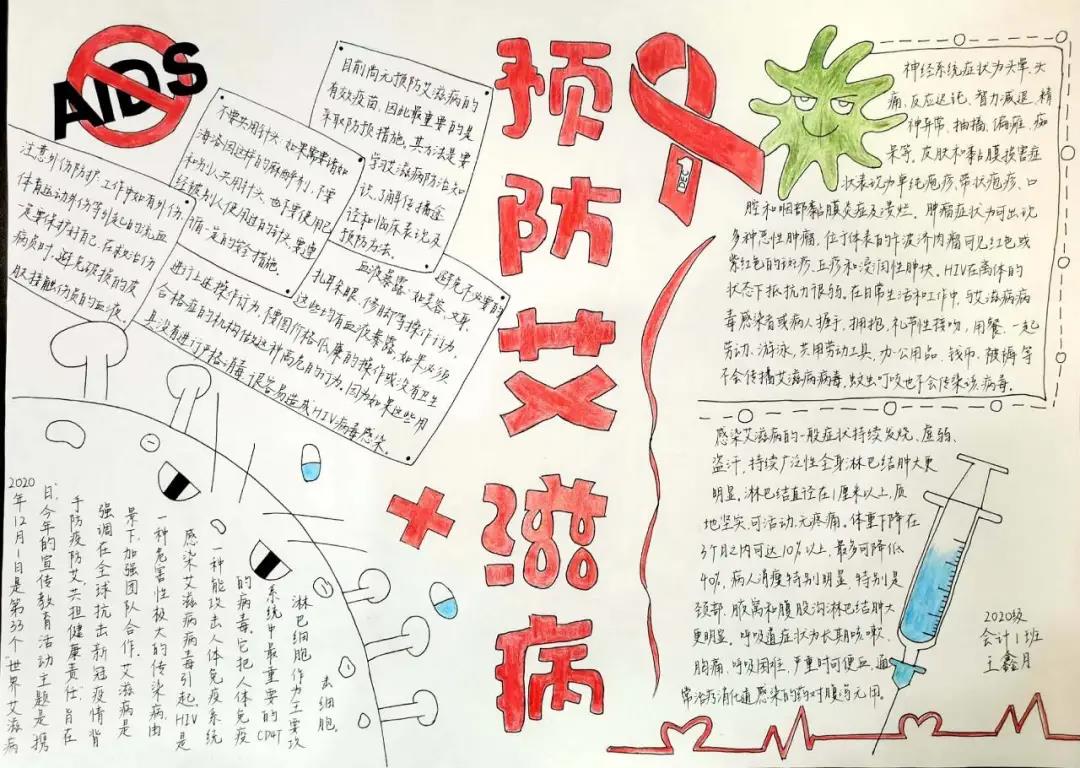 AIDS
预防艾滋病
DEC 1
目前尚无预防艾滋病的
有效疫苗，因此最重要的是
采取防预措施，其方法是要
学习艾滋病防治知
识，了解传播途
径和临床表现及
预防方法。
不要共用针头，如果需要诸如
海洛因这样的麻醉剂，不要
和别人共用针头，也不要使用已
经被别人使用过的针头，要遵
循一定的安全措施。
注意外伤防护，工作中如有外伤、
体育运动外伤等引起的流血
一定要保护好自己，在救治伤
病员时，避免破损的皮
肤接触伤员的血液。
避免不必要的
血液暴露，如美容、文身、
扎耳朵眼、修脚等操作行为，
这些均有血液暴露，如果必须
进行上述操作行为，不要图价格低廉的操作或没有卫生
合格证的机构佑处这种高危的行为，因为如果这些用
具没有进行严格消毒，很容易造成HIV病毒感染。
神经系统症状为头晕、头
痛、反应迟钝、智力减退、精
神异常、抽搐、偏瘫、痴
呆等。皮肤和黏膜损害症
状表现为单纯疱疹、带状疱疹、口
腔和咽部黏膜炎症及溃烂。肿瘤症状为可出现
多种恶性肿瘤，位于体表的卡波济肉瘤可见红色或
紫红色的斑疹、丘疹和浸润性肿块。HIV在离体的
状态下抵抗力很弱。在日常生活和工作中，与艾滋病病
毒感染者或病人握手，拥抱，礼节性接吻，用餐，一起
劳动、游泳，共用劳动工具、办公用品、钱币、被褥等
不会传播艾滋病病毒，蚊虫叮咬也不会传染该病毒。
感染艾滋病的一般症状持续发烧、虚弱、
盗汗，持续广泛性全身淋巴结肿大更
明显。淋巴结直径在1厘米以上，质
地坚实，可活动，无疼痛。体重下降在
3个月之内可达10%以上，最多可降低
40%，病人消瘦特别明显，特别是
颈部、腋窝和腹股沟淋巴结肿大
更明显。呼吸道症状为长期咳嗽、
胸痛、呼吸困难、严重时可便血，通
常治疗消化道感染的药对腹泻无用。
2020年12月1日是第33个“世界艾滋病
日”，今年的宣传教育活动主题是“携
手防疫防艾，共担健康责任”，旨在
强调在全球抗击新冠疫情背
景下，加强团队合作。艾滋病是
一种危害性极大的传染病，由
感染艾滋病病毒引起，HIV是
一种能攻击人体免疫系统
的病毒。它把人体免疫
系统中最重要的CD4T
淋巴细胞作为主要攻
去细胞。
2020级
会计1班
王鑫月